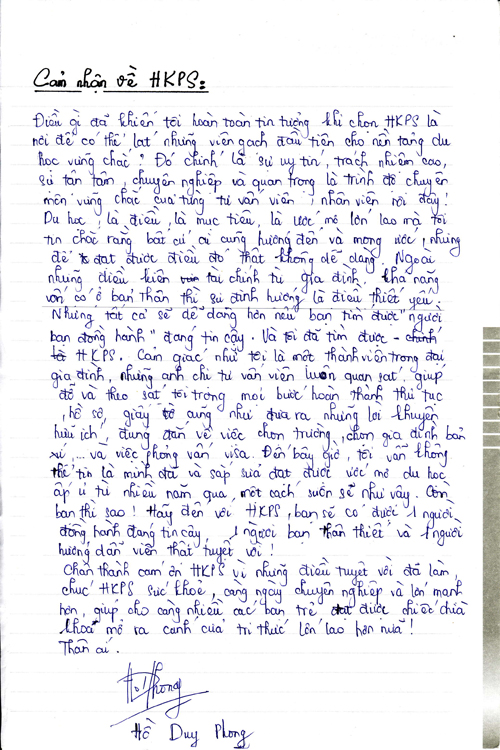 Cảm nhận về HKPS:
Điều gì đã khiến tôi hoàn toàn tin tưởng khi chọn HKPS là
nơi để có thể lát những viên gạch đầu tiên cho nền tảng du
học vững chãi? Đó chính là sự uy tín, trách nhiệm cao,
sự tận tâm, chuyên nghiệp và quan trọng là trình độ chuyên
môn vững chắc của từng tư vấn viên, nhân viên nơi đây!
Du học, là điều, là mục tiêu, là ước mơ lớn lao mà tôi
tin chắc rằng bất cứ ai cũng hướng đến và mong ước, nhưng
để đạt được điều đó thật không dễ dàng. Ngoài
những điều kiện tài chính từ gia đình, khả năng
vốn có ở bản thân thì sự định hướng là điều thiết yếu.
Nhưng tất cả sẽ dễ dàng hơn nếu bạn tìm được "người
bạn đồng hành" đáng tin cậy. Và tôi đã tìm được - chính
là HKPS. Cảm giác như tôi là một thành viên trong đại
gia đình, những anh chị tư vấn viên luôn quan sát, giúp
đỡ và theo sát tôi trong mọi bước hoàn thành thủ tục
, hồ sơ, giấy tờ cũng như đưa ra những lời khuyên
hữu ích, đúng đắn về việc chọn trường, chọn gia đình bản
xứ,... và việc phỏng vấn visa. Đến bây giờ, tôi vẫn không
thể tin là mình đã và sắp sửa đạt được ước mơ du học
ấp ủ từ nhiều năm qua, một cách suôn sẻ như vậy. Còn
bạn thì sao! Hãy đến với HKPS, bạn sẽ có được 1 người
đồng hành đáng tin cậy, 1 người bạn thân thiết và 1 người
hướng dẫn viên thật tuyệt vời!
Chân thành cảm ơn HKPS vì những điều tuyệt vời đã làm,
chúc HKPS sức khoẻ, càng ngày chuyên nghiệp và lớn mạnh
hơn, giúp cho càng nhiều các bạn trẻ đạt được chiếc chìa
khoá mở ra cánh cửa tri thức lớn lao hơn nữa!
Thân ái.
Hồ Duy Phong